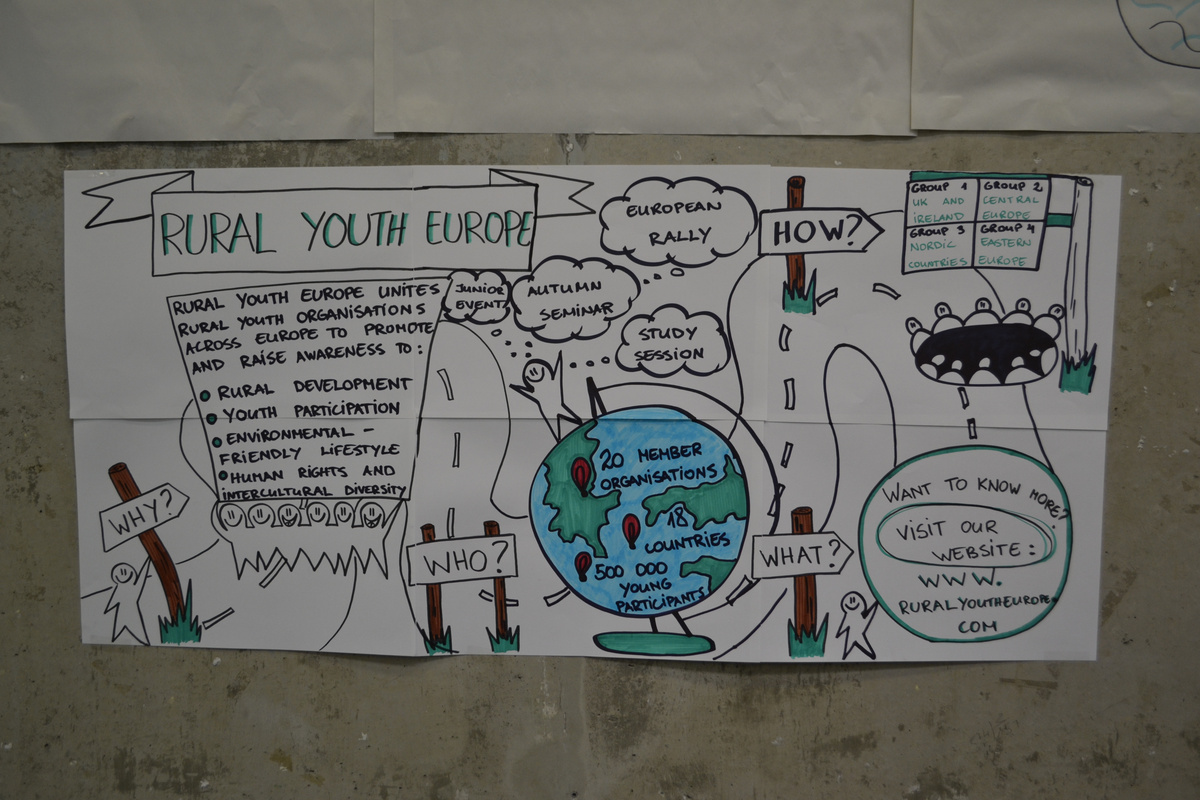 RURAL YOUTH EUROPE
RURAL YOUTH EUROPE UNITES
RURAL YOUTH ORGANISATIONS
ACROSS EUROPE TO PROMOTE
AND RAISE AWARENESS TO:
RURAL DEVELOPMENT
YOUTH PARTICIPATION
ENVIRONMENTAL -
FRIENDLY LIFESTYLE
HUMAN RIGHTS AND
INTERCULTURAL DIVERSITY
WHY?
WHO?
JUNIOR
EVENT
AUTUMN
SEMINAR
EUROPEAN
RALLY
STUDY
SESSION
20 MEMBER
ORGANISATIONS
18
COUNTRIES
500 000
YOUNG
PARTICIPANTS
WHAT?
HOW?
GROUP 1
UK AND
IRELAND
GROUP 2
CENTRAL
EUROPE
GROUP 3
NORDIC
COUNTRIES
GROUP 4
EASTERN
EUROPE
WANT TO KNOW MORE?
VISIT OUR
WEBSITE:
WWW.
RURALYOUTHEUROPE.
COM